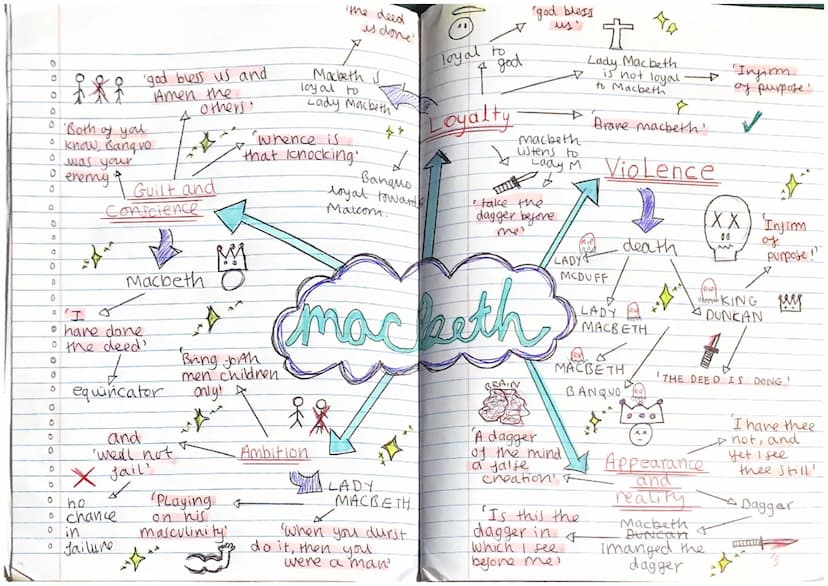 'the deed
is done'
Macbeth is
loyal to
Lady Macbeth
'god bless us and
Amen the
others'
'Both of you
know, Banquo
was your
enemy'
'Whence is
that knocking'
Guilt and
Conscience
Banquo
loyal towards
Malcom.
Macbeth
'I
have done
the deed'
equivicator
'Bring forth
men children
only'
Ambition
and
'we'll not
fail'
no
chance
in
failure
LADY
MACBETH
'Playing
on his
masculinity'
'When you durst
do it, then you
were a man'
macbeth
Loyalty
loyal to
god
'god bless
us'
Lady Macbeth
is not loyal
to Macbeth
'Infirm
of purpose'
'Brave macbeth'
Macbeth
listens to
Lady M
'take the
dagger before
me'
Violence
death
LADY
MCDUFF
LADY
MACBETH
MACBETH
BANQUO
KING
DUNCAN
'Infirm
of
purpose!'
'THE DEED IS DONE'
Appearance
and
reality
BRAIN
'A dagger
of the mind
a false
creation'
'I have thee
not, and
yet I see
thee still'
Dagger
Macbeth
DUNCAN
imanged the
dagger
'Is this the
dagger in
which I see
before me'